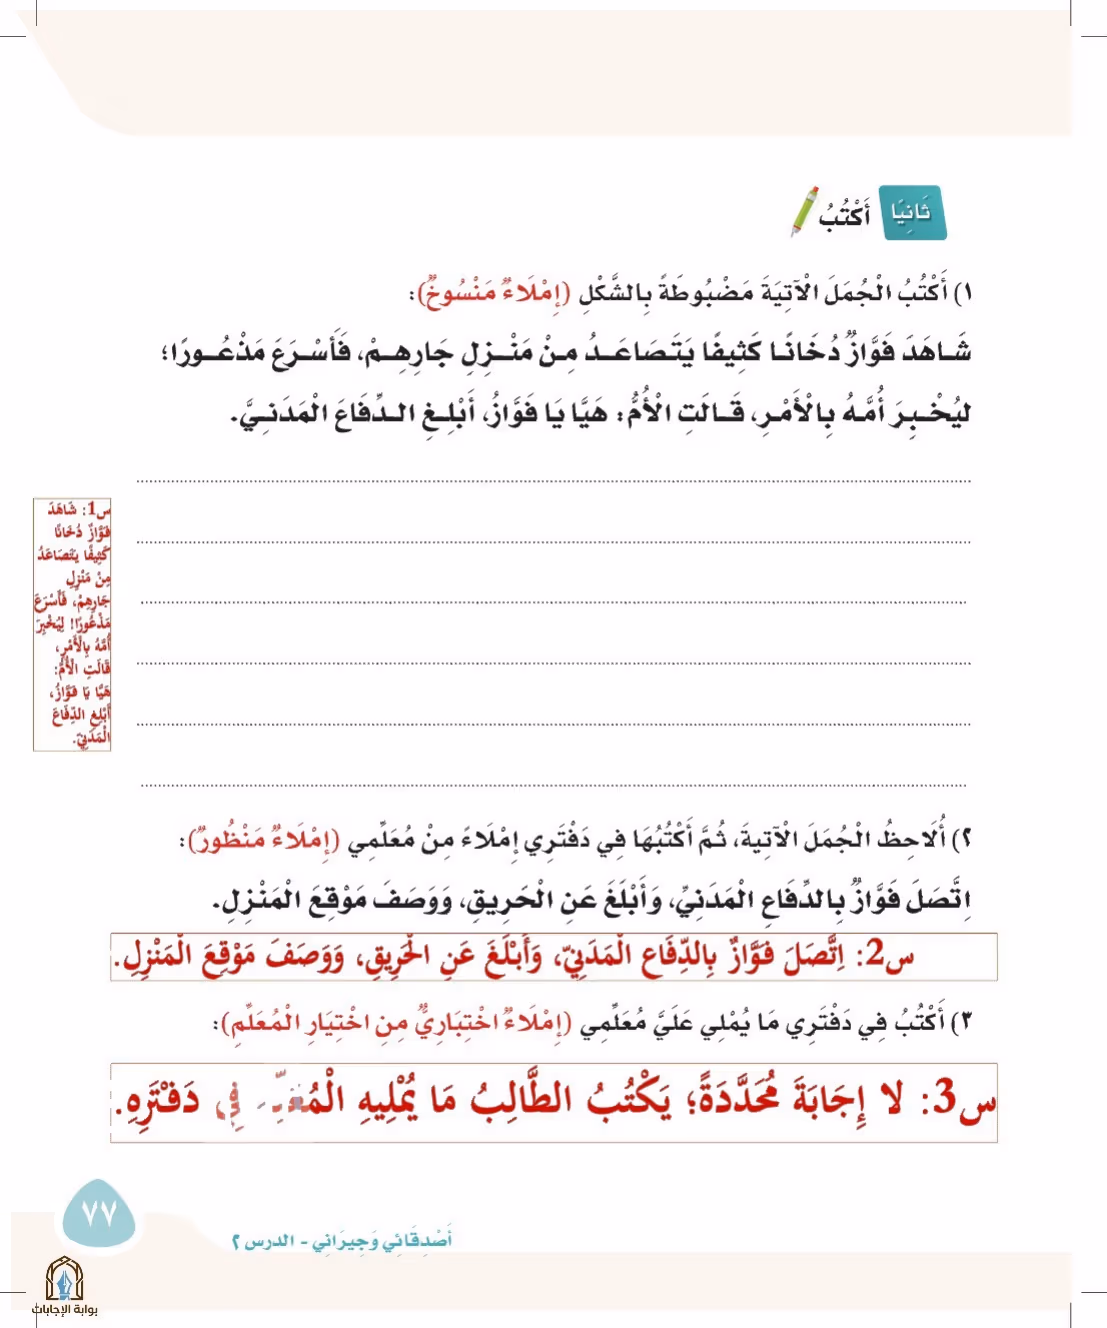 ثَانِيًا
أَكْتُبُ
١) أَكْتُبُ الْجُمَلَ الْآتِيَةَ مَضْبُوطَةً بِالشَّكْلِ (إِمْلَاءٌ مَنْسُوخٌ):
شَاهَدَ فَوَّازٌ دُخَانًا كَثِيفًا يَتَصَاعَدُ مِنْ مَنْزِلِ جَارِهِمْ، فَأَسْرَعَ مَذْعُورًا؛
لِيُخْبِرَ أُمَّهُ بِالْأَمْرِ، قَالَتِ الْأُمُّ: هَيَّا يَا فَوَّازُ، أَبْلِغِ الدِّفَاعَ الْمَدَنِيَّ.
س1: شَاهَدَ
فَوَّازٌ دُخَانًا
كَثِيفًا يَتَصَاعَدُ
مِنْ مَنْزِلِ
جَارِهِمْ، فَأَسْرَعَ
مَذْعُورًا! لِيُخْبِرَ
أُمَّهُ بِالْأَمْرِ،
قَالَتِ الْأُمُّ:
هَيَّا يَا فَوَّازُ،
أَبْلِغِ الدِّفَاعَ
الْمَدَنِيّ.
٢) أُلَاحِظُ الْجُمَلَ الْآتِيةَ، ثُمَّ أَكْتُبُهَا فِي دَفْتَرِي إِمْلَاءً مِنْ مُعَلِّمِي (إِمْلَاءٌ مَنْظُورٌ):
اِتَّصَلَ فَوَّازٌ بِالدِّفَاعِ الْمَدَنِيِّ، وَأَبْلَغَ عَنِ الْحَرِيقِ، وَوَصَفَ مَوْقِعَ الْمَنْزِلِ.
س2: اِتَّصَلَ فَوَّازٌ بِالدِّفَاعِ الْمَدَنِيّ، وَأَبْلَغَ عَنِ الْحَرِيقِ، وَوَصَفَ مَوْقِعَ الْمَنْزِلِ.
٣) أَكْتُبُ فِي دَفْتَرِي مَا يُمْلِي عَلَيَّ مُعَلِّمِي (إِمْلَاءٌ اخْتِبَارِيٌّ مِنِ اخْتِيَارِ الْمُعَلِّمِ):
س3: لا إِجَابَةَ مُحَدَّدَةً؛ يَكْتُبُ الطَّالِبُ مَا يُمْلِيهِ فِي دَفْتَرِهِ.
٧٧
أَصْدِقَائِي وَجِيرَانِي - الدرس ٢
بوابة الإجابات